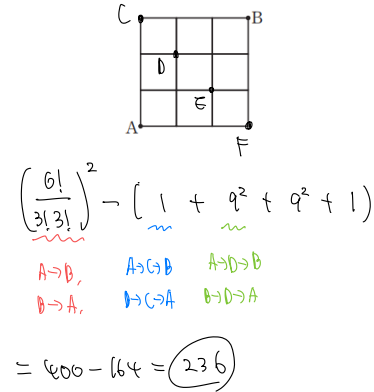 C B
D
E
A
F
(6!/3!3!)² - ( 1 + 9² + 9² + 1 )
A→B, A→C→B A→D→B
B→A, B→C→A B→D→A
= 400 - 164 = 236